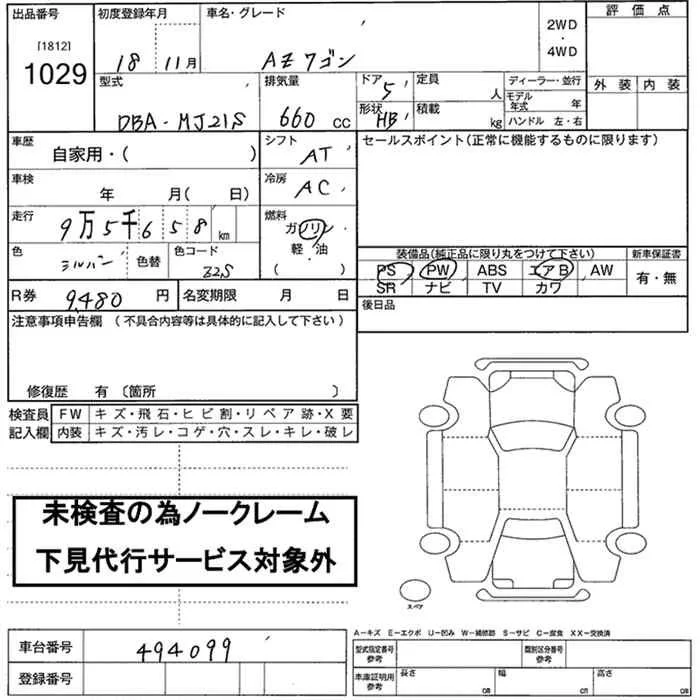 出品番号 初度登録年月 車名・グレード 評価点
[1812]
1029
18 11月 AZワゴン 2WD・4WD
型式 排気量 ドア 定員 ディーラー・並行 外装 内装
5 人 モデル年式 年
DBA-MJ21S 660 cc 形状 HB 積載 kg ハンドル 左・右
車歴 シフト セールスポイント(正常に機能するものに限ります)
自家用・( ) AT
車検 冷房
年 月(日) AC
走行 9万5千658 km 燃料 ガソリン・軽・油 ( )
色 シルバー 色替 色コード Z2S
装備品(純正品に限り丸をつけて下さい) 新車保証書
PS PW ABS エアB AW 有・無
SR ナビ TV カワ
R券 9,480円 名変期限 月 日 後日品
注意事項申告欄(不具合内容等は具体的に記入して下さい)
修復歴 有〔箇所 〕
検査員 FW キズ・飛石・ヒビ割・リペア跡・X要
記入欄 内装 キズ・汚レ・コゲ・穴・スレ・キレ・破レ
未検査の為ノークレーム
下見代行サービス対象外
スペア
A-キズ E-エクボ U-凹み W-補修跡 S-サビ C-腐食 XX-交換済
車台番号 494099 型式指定番号 参考 類別区分番号 参考
登録番号 車庫証明用 参考 長さ cm 幅 cm 高さ cm